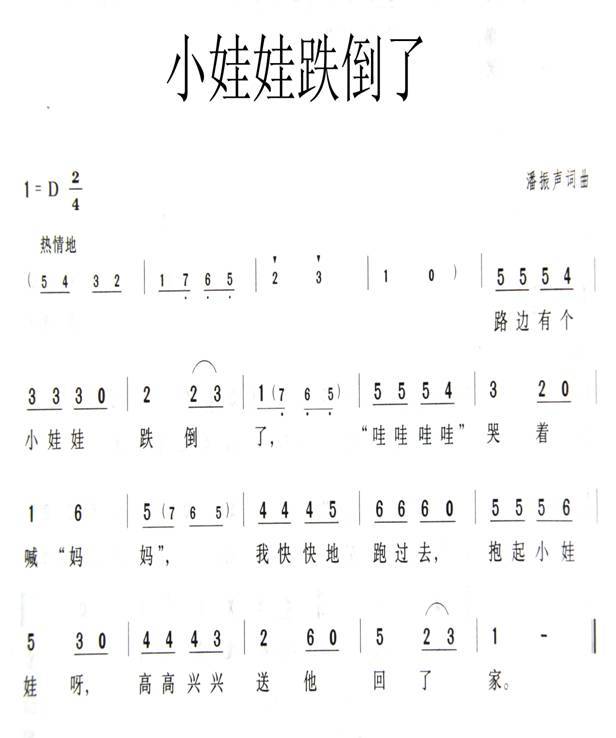 小娃娃跌倒了
1=D 2/4
潘振声词曲
热情地
(5 4 3 2 | 1 7 6 5 | 2 3 | 1 0) | 5 5 5 4 |
路边有个
3 3 3 0 | 2 2 3 | 1(7 6 5) | 5 5 5 4 | 3 2 0 |
小娃娃 跌倒 了, “哇哇哇哇”哭着
1 6 | 5(7 6 5) | 4 4 4 5 | 6 6 6 0 | 5 5 5 6 |
喊“妈 妈”, 我快快地 跑过去, 抱起小娃
5 3 0 | 4 4 4 3 | 2 6 0 | 5 2 3 | 1 - ‖
娃呀, 高高兴兴 送他 回了 家。